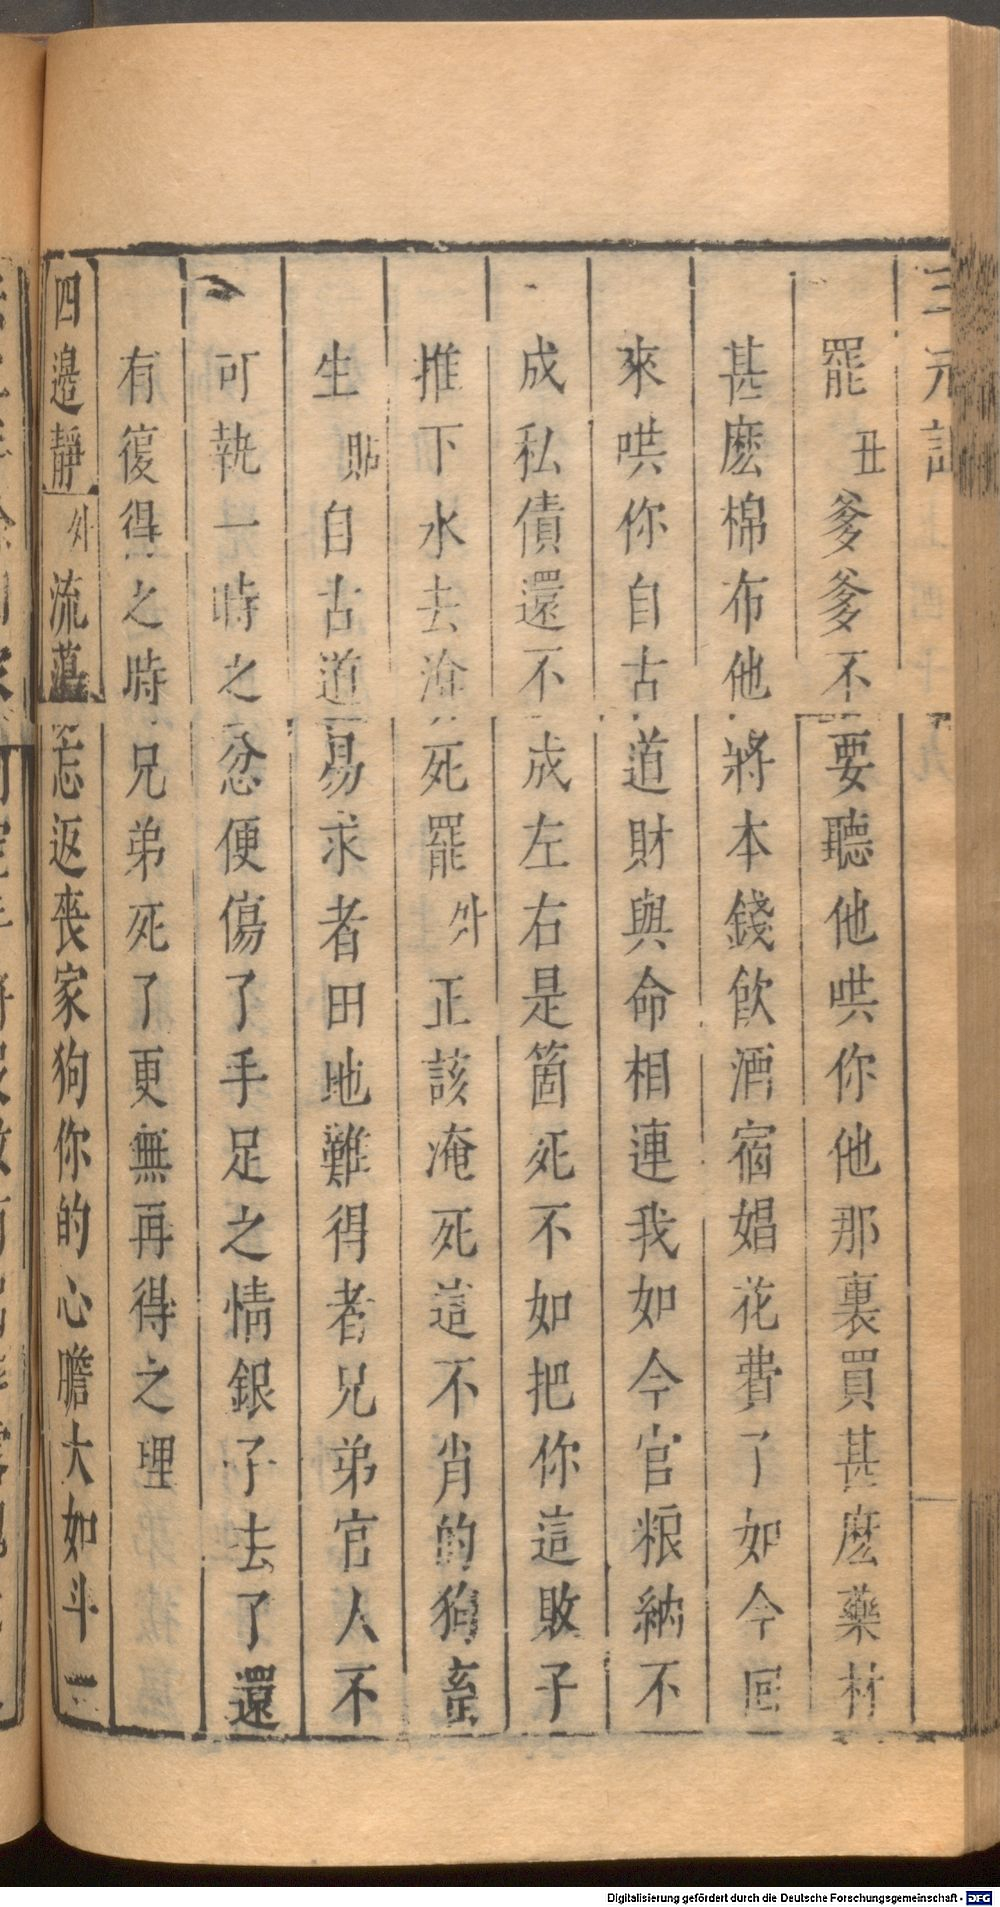 三元記
罷 丑 爹爹不要聽他哄你他那裏買甚麽藥材
甚麽棉布他將本錢飲酒宿娼花費了如今回
來哄你自古道財與命相連我如今官粮納不
成私債還不成左右是箇死不如把你這敗子
推下水去渰死罷 外 正該淹死這不肖的狗畜
生 貼 自古道易求者田地難得者兄弟官人不
可執一時之忿便傷了手足之情銀子去了還
有復得之時兄弟死了更無再得之理
四邊靜 外 流蕩忘返喪家狗你的心膽大如斗
Digitalisierung gefördert durch die Deutsche Forschungsgemeinschaft - DFG